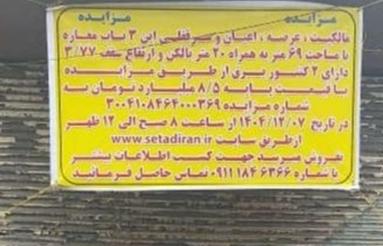 مزایده مزایده
مالکیت ، عرصه ، اعیان و سرقفلی این ۳ باب مغازه
با مساحت ۶۹ متر به همراه ۲۰ متر بالکن و ارتفاع سقف ۳/۷۷
دارای ۲ کنتور برق از طریق مزایده
با قیمت پایه ۸/۵ میلیارد تومان به
شماره مزایده ۳۰۰۴۱۰۸۴۶۴۰۰۰۳۶۹
در تاریخ ۱۴۰۴/۱۲/۰۷ از ساعت ۸ صبح الی ۱۲ ظهر
ازطریق سایت www.setadiran.ir
بفروش میرسد جهت کسب اطلاعات بیشتر
با شماره ۶۳۶۶ ۱۸۴ ۰۹۱۱ تماس حاصل فرمائید